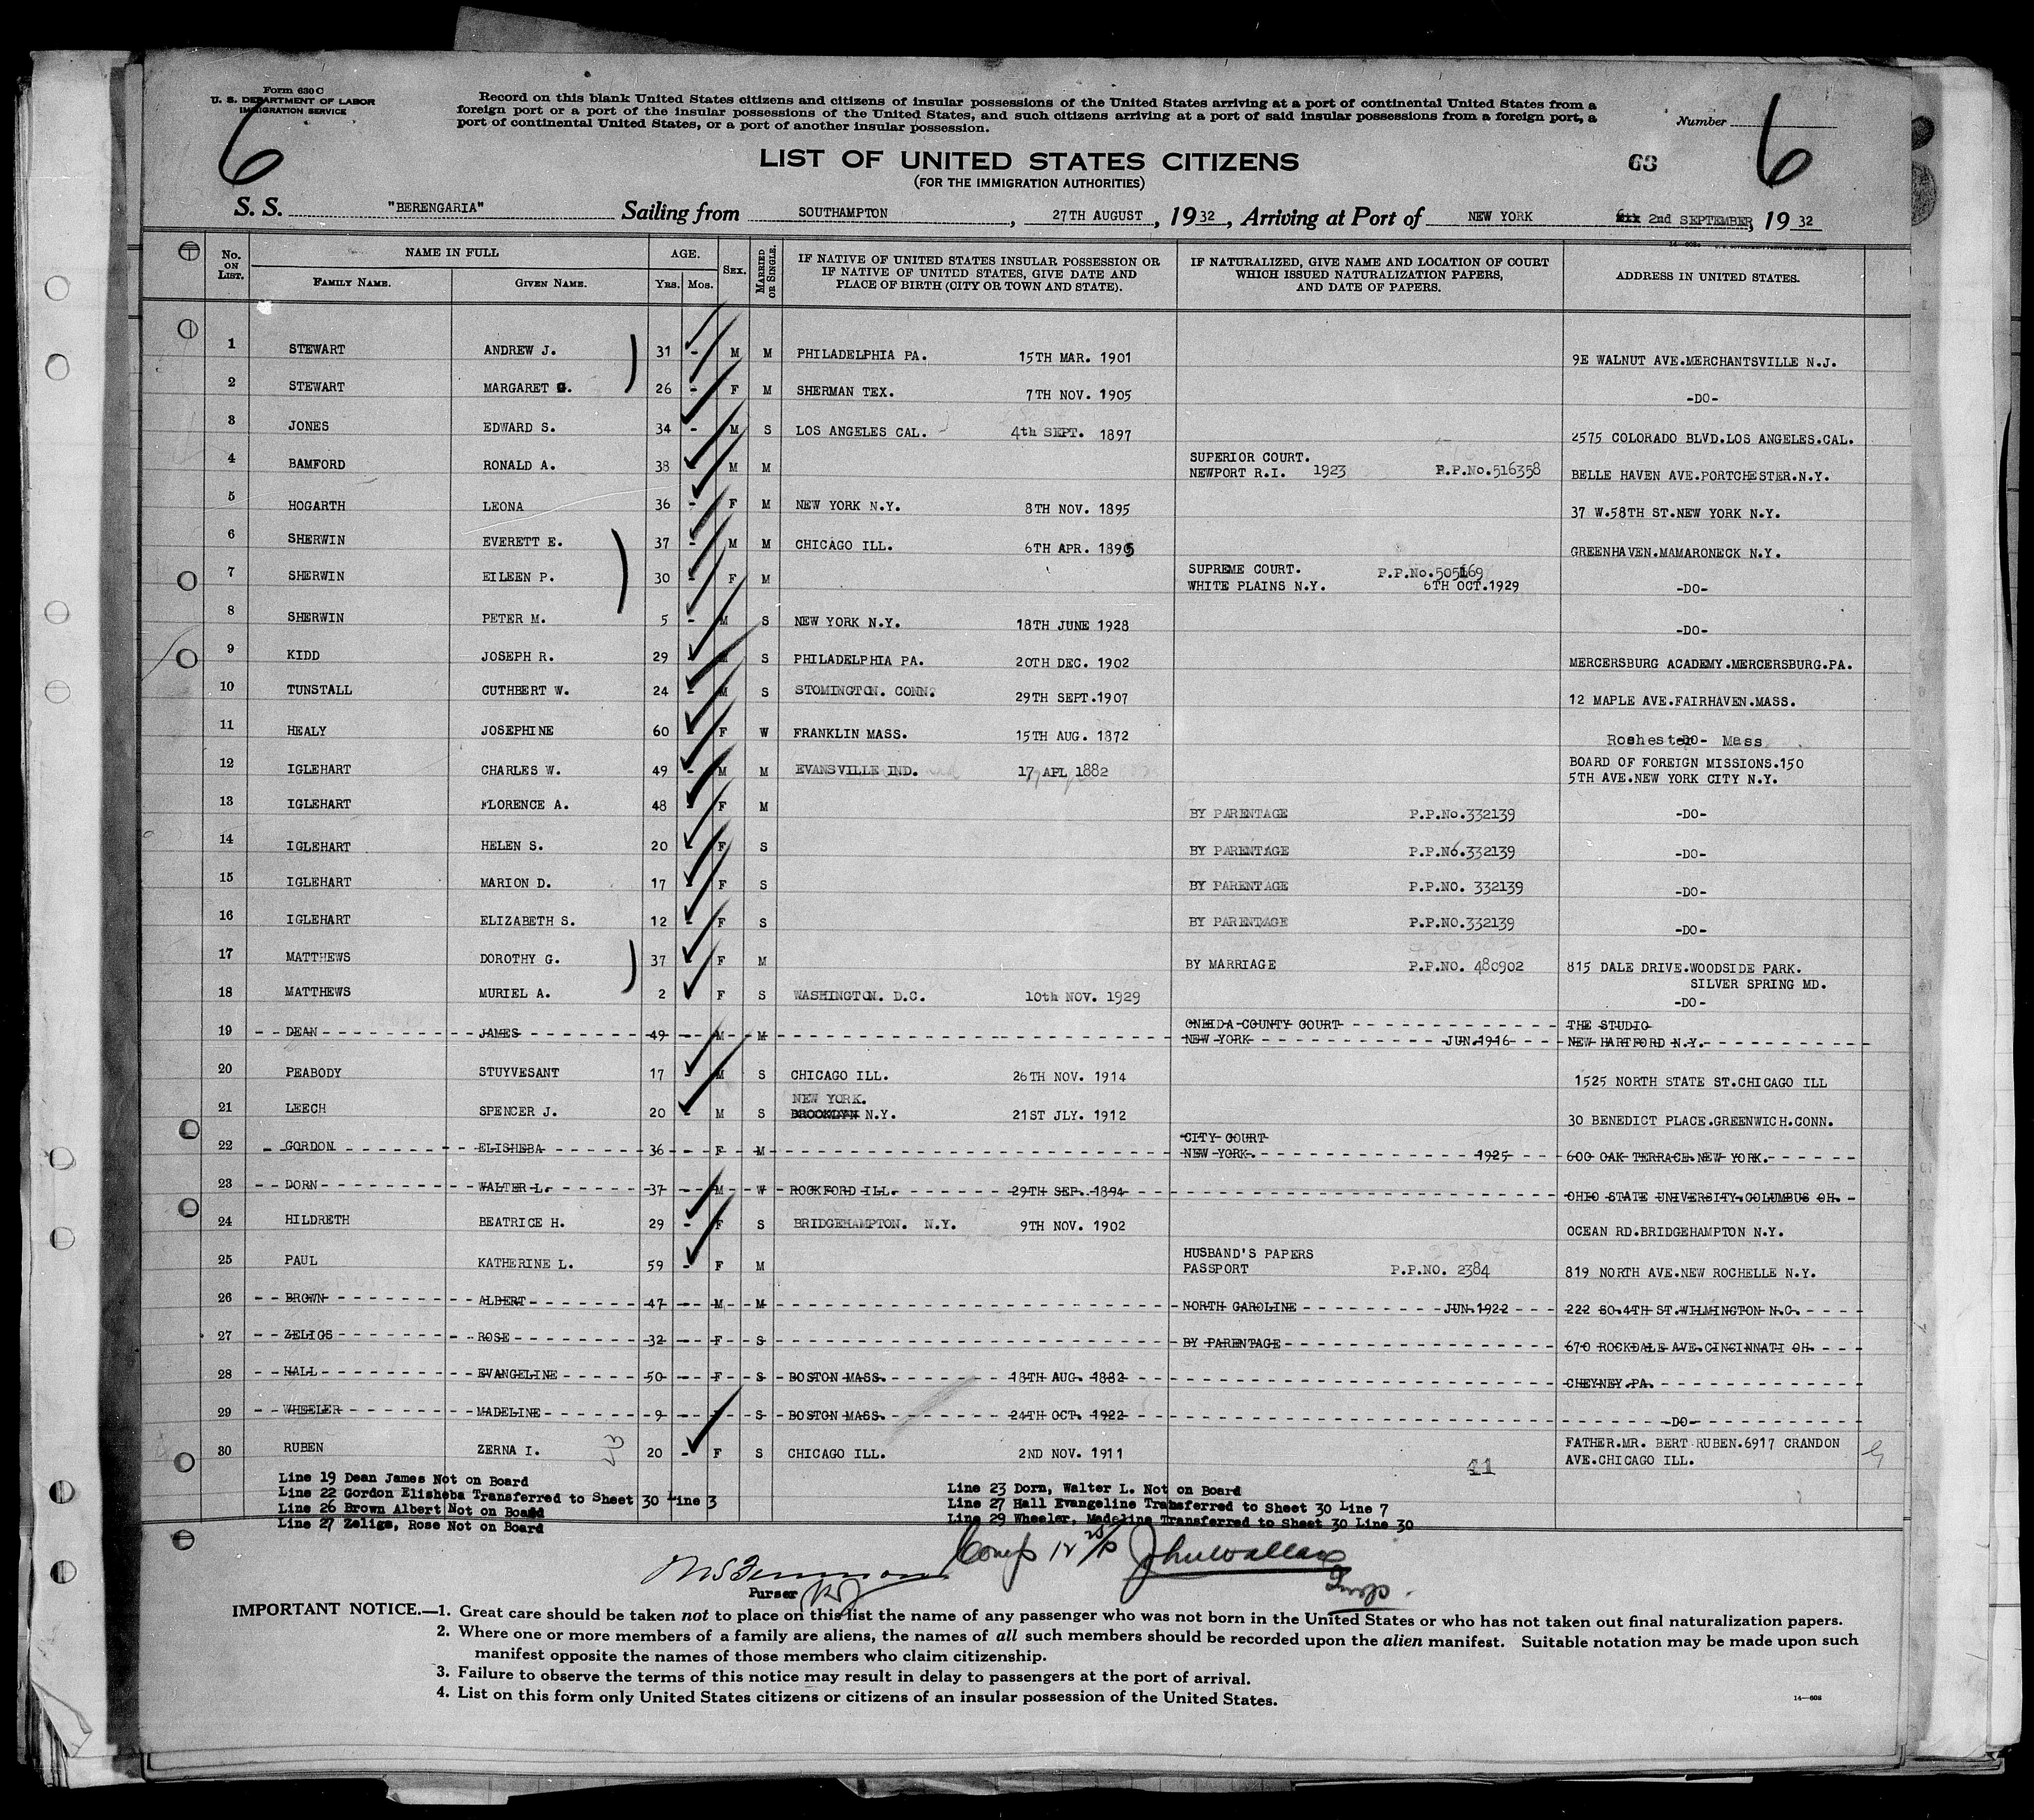 Form 630 C
U. S. DEPARTMENT OF LABOR
IMMIGRATION SERVICE
6
Record on this blank United States citizens and citizens of insular possessions of the United States arriving at a port of continental United States from a
foreign port or a port of the insular possessions of the United States, and such citizens arriving at a port of said insular possessions from a foreign port, a
port of continental United States, or a port of another insular possession.
Number 6
LIST OF UNITED STATES CITIZENS
(FOR THE IMMIGRATION AUTHORITIES)
63
S. S. "BERENGARIA" Sailing from SOUTHAMPTON, 27TH AUGUST, 1932, Arriving at Port of NEW YORK 2nd SEPTEMBER, 1932
No. ON LIST. NAME IN FULL FAMILY NAME. GIVEN NAME. AGE. YRS. MOS. SEX. MARRIED OR SINGLE. IF NATIVE OF UNITED STATES INSULAR POSSESSION OR IF NATIVE OF UNITED STATES, GIVE DATE AND PLACE OF BIRTH (CITY OR TOWN AND STATE). IF NATURALIZED, GIVE NAME AND LOCATION OF COURT WHICH ISSUED NATURALIZATION PAPERS, AND DATE OF PAPERS. ADDRESS IN UNITED STATES.
1 STEWART ANDREW J. 31 - M M PHILADELPHIA PA. 15TH MAR. 1901 9E WALNUT AVE.MERCHANTSVILLE N.J.
2 STEWART MARGARET G. 26 - F M SHERMAN TEX. 7TH NOV. 1905 -DO-
3 JONES EDWARD S. 34 - M S LOS ANGELES CAL. 4th SEPT. 1897 2575 COLORADO BLVD.LOS ANGELES.CAL.
4 BAMFORD RONALD A. 38 - M M SUPERIOR COURT. NEWPORT R.I. 1923 P.P.No.516358 BELLE HAVEN AVE.PORTCHESTER.N.Y.
5 HOGARTH LEONA 36 - F M NEW YORK N.Y. 8TH NOV. 1895 37 W.58TH ST.NEW YORK N.Y.
6 SHERWIN EVERETT E. 37 - M M CHICAGO ILL. 6TH APR. 1895 GREENHAVEN.MAMARONECK N.Y.
7 SHERWIN EILEEN P. 30 - F M SUPREME COURT. P.P.No.505169 WHITE PLAINS N.Y. 6TH OCT.1929 -DO-
8 SHERWIN PETER M. 5 - M S NEW YORK N.Y. 18TH JUNE 1928 -DO-
9 KIDD JOSEPH R. 29 - M S PHILADELPHIA PA. 20TH DEC. 1902 MERCERSBURG ACADEMY.MERCERSBURG.PA.
10 TUNSTALL CUTHBERT W. 24 - M S STOMINGTON. CONN. 29TH SEPT.1907 12 MAPLE AVE.FAIRHAVEN.MASS.
11 HEALY JOSEPHINE 60 - F W FRANKLIN MASS. 15TH AUG. 1872 -DO- Rochester Mass
12 IGLEHART CHARLES W. 49 - M M EVANSVILLE IND. 17 APL 1882 BOARD OF FOREIGN MISSIONS.150 5TH AVE.NEW YORK CITY N.Y.
13 IGLEHART FLORENCE A. 48 - F M BY PARENTAGE P.P.No.332139 -DO-
14 IGLEHART HELEN S. 20 - F S BY PARENTAGE P.P.No.332139 -DO-
15 IGLEHART MARION D. 17 - F S BY PARENTAGE P.P.NO. 332139 -DO-
16 IGLEHART ELIZABETH S. 12 - F S BY PARENTAGE P.P.NO.332139 -DO-
17 MATTHEWS DOROTHY G. 37 - F M BY MARRIAGE P.P.NO. 480902 815 DALE DRIVE.WOODSIDE PARK. SILVER SPRING MD.
18 MATTHEWS MURIEL A. 2 F S WASHINGTON. D.C. 10th NOV. 1929 -DO-
19 DEAN JAMES 49 - M M ONEIDA COUNTY COURT NEW YORK JUN.1916 THE STUDIO NEW HARTFORD N.Y.
20 PEABODY STUYVESANT 17 - M S CHICAGO ILL. 26TH NOV. 1914 1525 NORTH STATE ST.CHICAGO ILL
21 LEECH SPENCER J. 20 - M S NEW YORK. BROOKLYN N.Y. 21ST JLY. 1912 30 BENEDICT PLACE.GREENWICH.CONN.
22 GORDON ELISHEBA 36 - F M CITY COURT NEW YORK. 1925 600 OAK TERRACE.NEW YORK.
23 DORN WALTER L. 37 - M W ROCKFORD ILL. 29TH SEP. 1894 OHIO STATE UNIVERSITY.COLUMBUS OH.
24 HILDRETH BEATRICE H. 29 - F S BRIDGEHAMPTON. N.Y. 9TH NOV. 1902 OCEAN RD.BRIDGEHAMPTON N.Y.
25 PAUL KATHERINE L. 59 - F M HUSBAND'S PAPERS PASSPORT P.P.NO. 2384 819 NORTH AVE.NEW ROCHELLE N.Y.
26 BROWN ALBERT 47 - M M NORTH CAROLINE JUN.1922 222 SO.4TH ST.WILMINGTON N.C.
27 ZELIGS ROSE 32 - F S BY PARENTAGE 670 ROCKDALE AVE.CINCINNATI OH.
28 HALL EVANGELINE 50 - F S BOSTON MASS. 18TH AUG. 1882 CHEYNEY.PA.
29 WHEELER MADELINE 9 - F S BOSTON MASS. 24TH OCT. 1922 -DO-
30 RUBEN ZERNA I. 20 - F S CHICAGO ILL. 2ND NOV. 1911 FATHER.MR. BERT RUBEN.6917 CRANDON AVE.CHICAGO ILL.
41
Line 19 Dean James Not on Board
Line 22 Gordon Elisheba Transferred to Sheet 30 Line 3
Line 26 Brown Albert Not on Board
Line 27 Zeligs, Rose Not on Board
Line 23 Dorn, Walter L. Not on Board
Line 27 Hall Evangeline Transferred to Sheet 30 Line 7
Line 29 Wheeler, Madeline Transferred to Sheet 30 Line 30
John Wallace
Purser
IMPORTANT NOTICE.—1. Great care should be taken not to place on this list the name of any passenger who was not born in the United States or who has not taken out final naturalization papers.
2. Where one or more members of a family are aliens, the names of all such members should be recorded upon the alien manifest. Suitable notation may be made upon such
manifest opposite the names of those members who claim citizenship.
3. Failure to observe the terms of this notice may result in delay to passengers at the port of arrival.
4. List on this form only United States citizens or citizens of an insular possession of the United States.
14—608